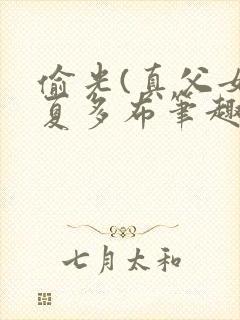 偷光(真父女
夏多布笔趣
七月太和